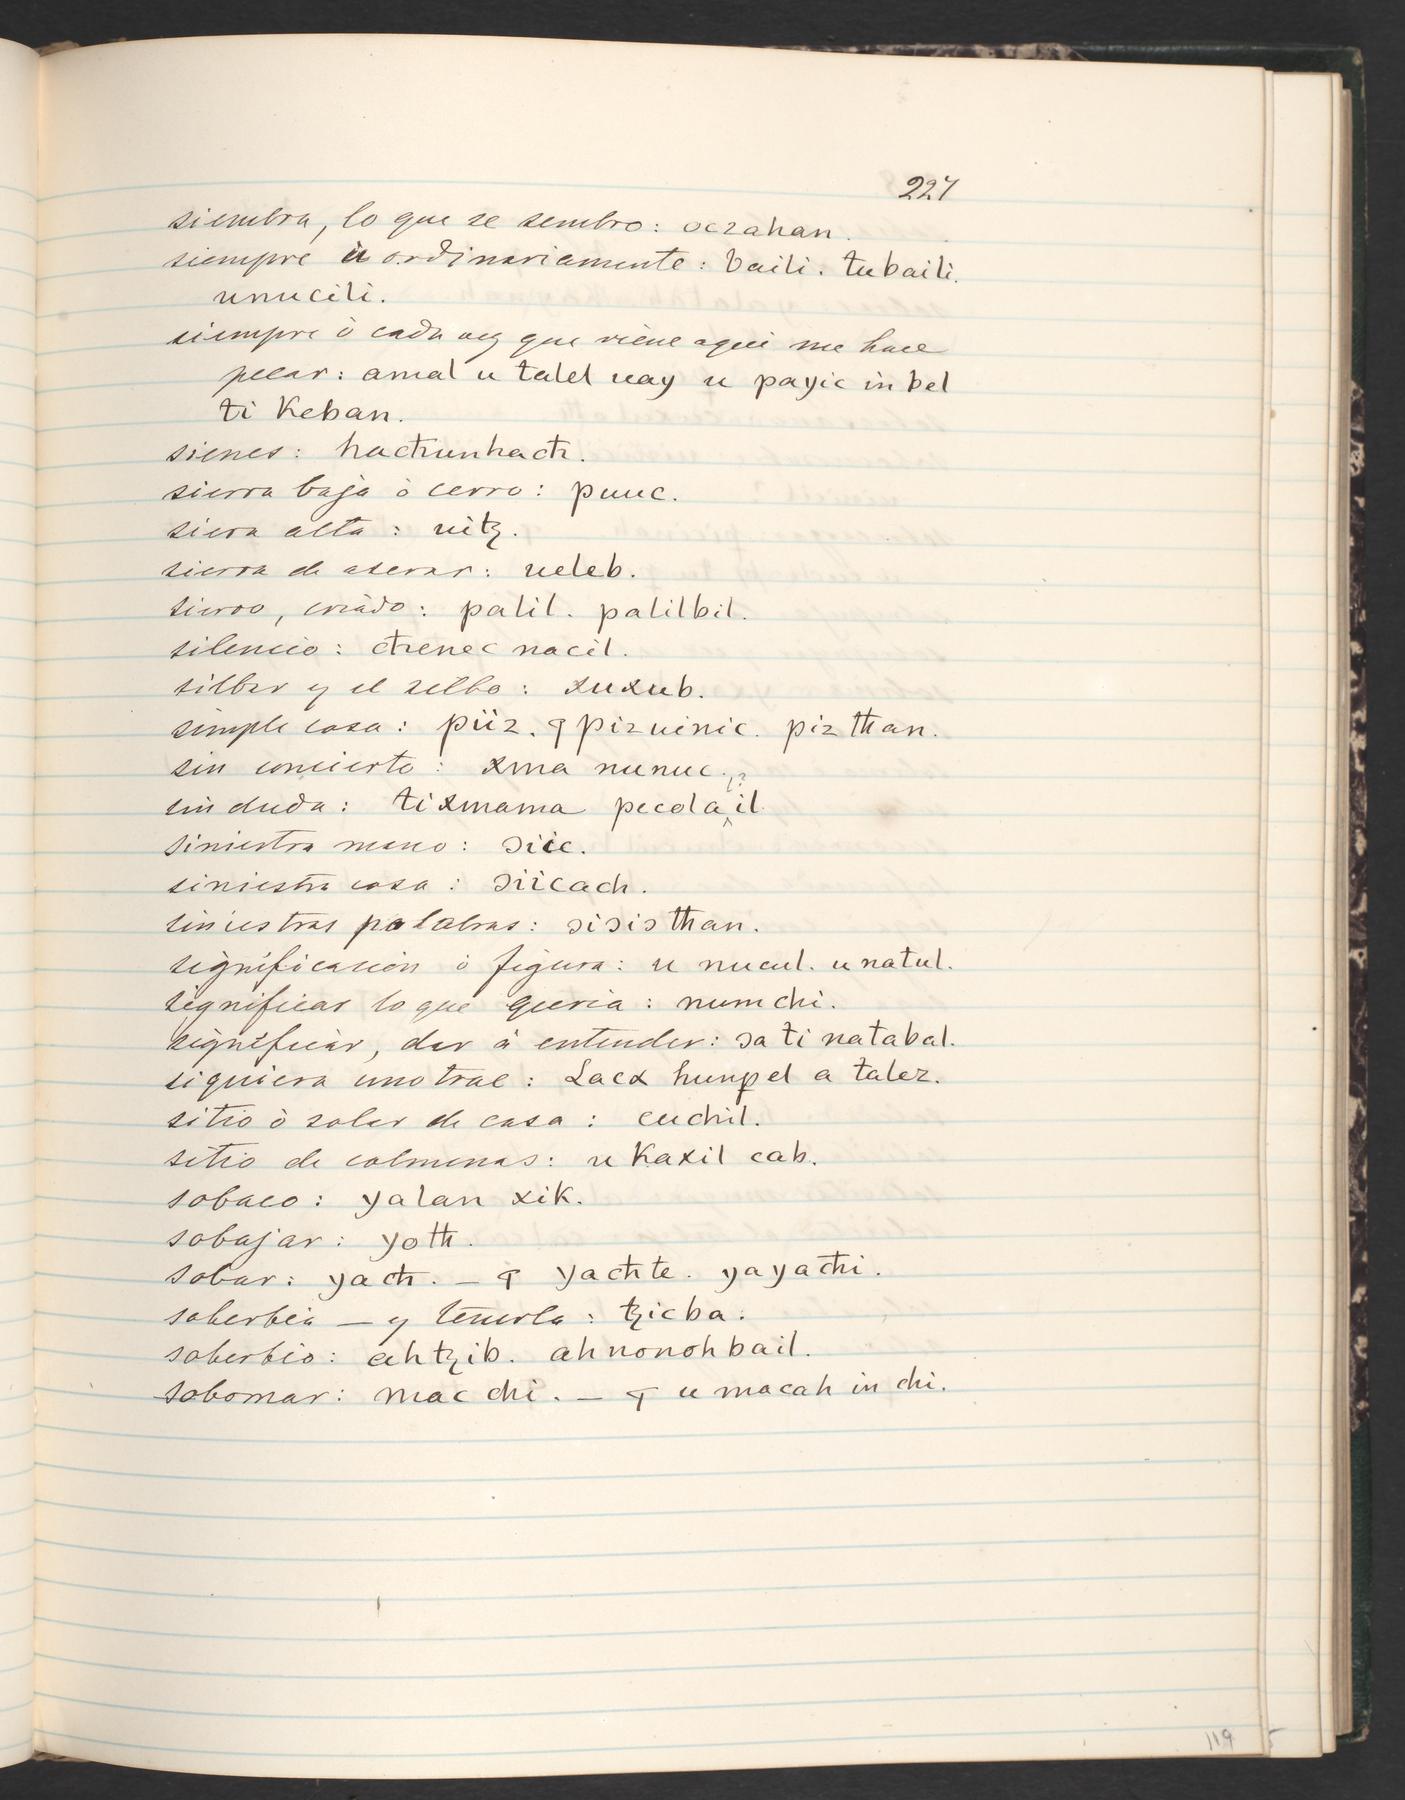 227
siembra, lo que se sembro: oczahan.
siempre ù ordinariamente: baili. tubaili.
unucili.
siempre ò cada vez que viene aqui me hace
pecar: amal u talel uay u payic in bel
ti Keban.
sienes: hacħunhacħ.
sierra baja ò cerro: puuc.
siera alta: uitz.
sierra de aserrar: ueleb.
siervo, criado: palil. palilbil.
silencio: cħenec nacil.
silbar y el silbo: xuxub.
simple cosa: piiz. ꟼ piz uinic. piz tħan.
sin concierto: xma nunuc.
sin duda: tixmama pecola^l?il.
siniestra mano: ɔiic.
siniestra cosa: ɔiicach.
siniestras palabras: ɔiɔiɔ tħan.
significacion ò figura: u nucul. u natul.
significar lo que queria: num chi.
significàr, dar à entender: ɔa ti natabal.
siquiera uno trae: Lacx hunpel a talez.
sitio ò solar de casa: cuchil.
sitio de colmenas: u Kaxil cab.
sobaco: yalan xik.
sobajar: yotħ.
sobar: yacħ. — ꟼ yacħte. yayacħi.
soberbia — y tenerla: tzicba.
soberbio: ahtzib. ahnonohbail.
sobornar: mac chi. — ꟼ u macah in chi.
119